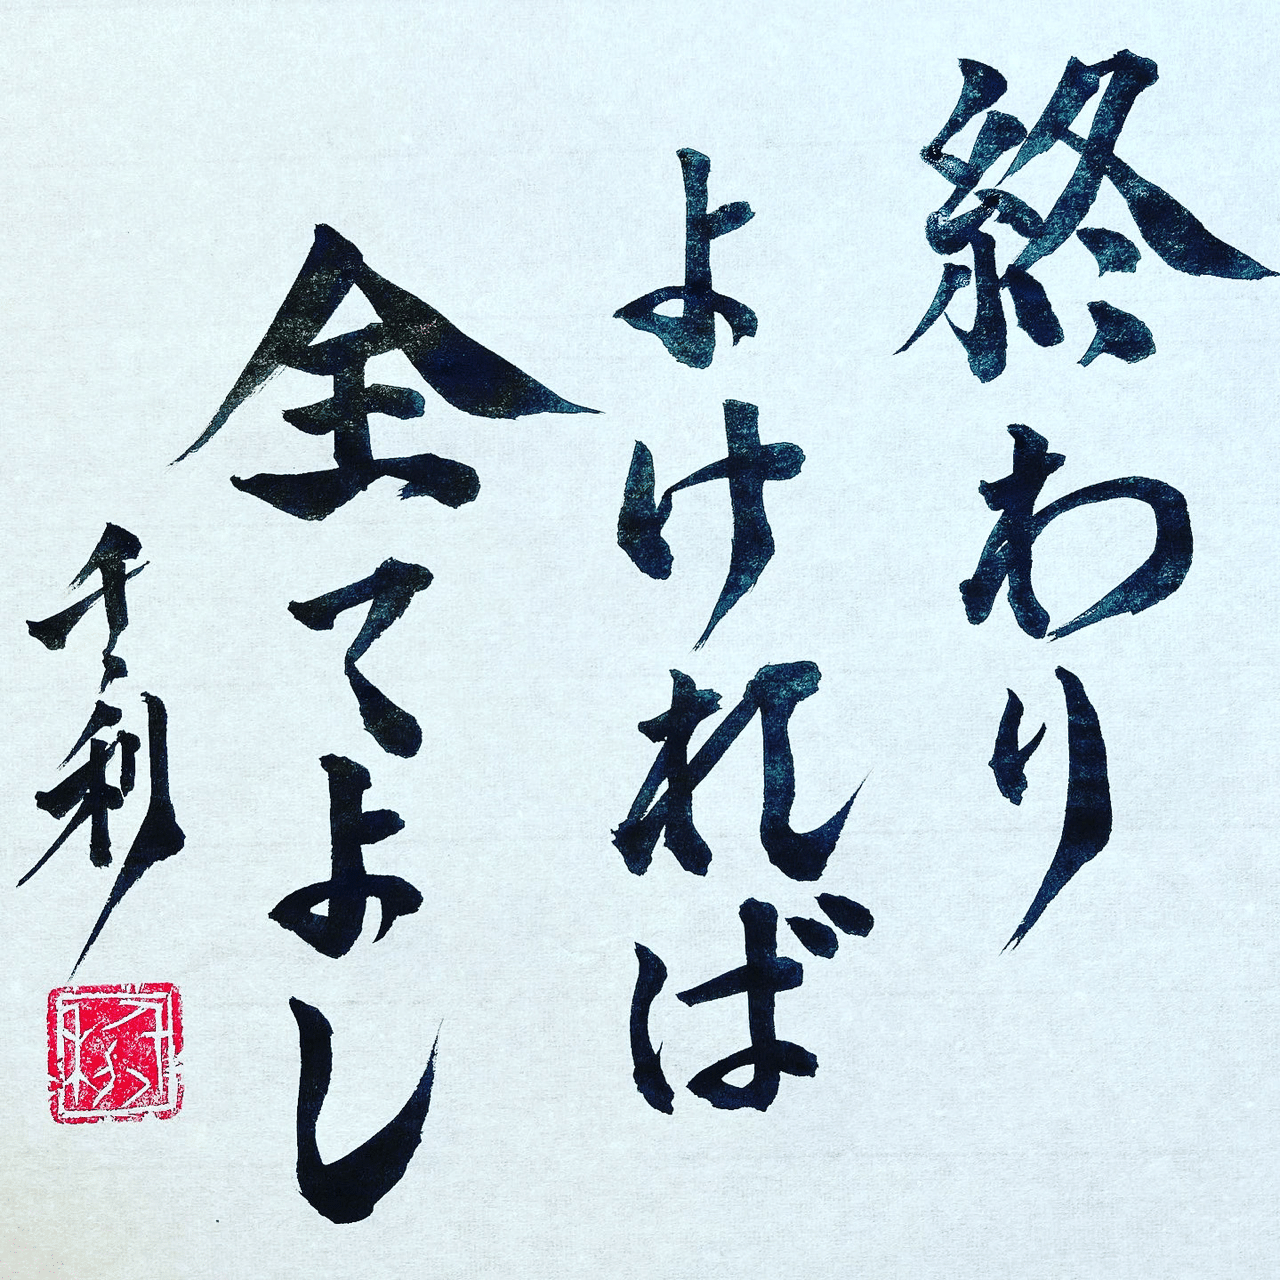 終わり
よければ
全てよし
千利